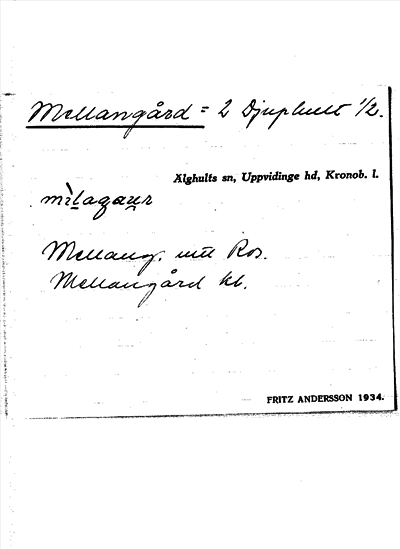 Mellangård = 2 Djuphult 1/2.
Älghults sn, Uppvidinge hd, Kronob. l.
Mellang. utt Ros.
Mellangård kb.
FRITZ ANDERSSON 1934.